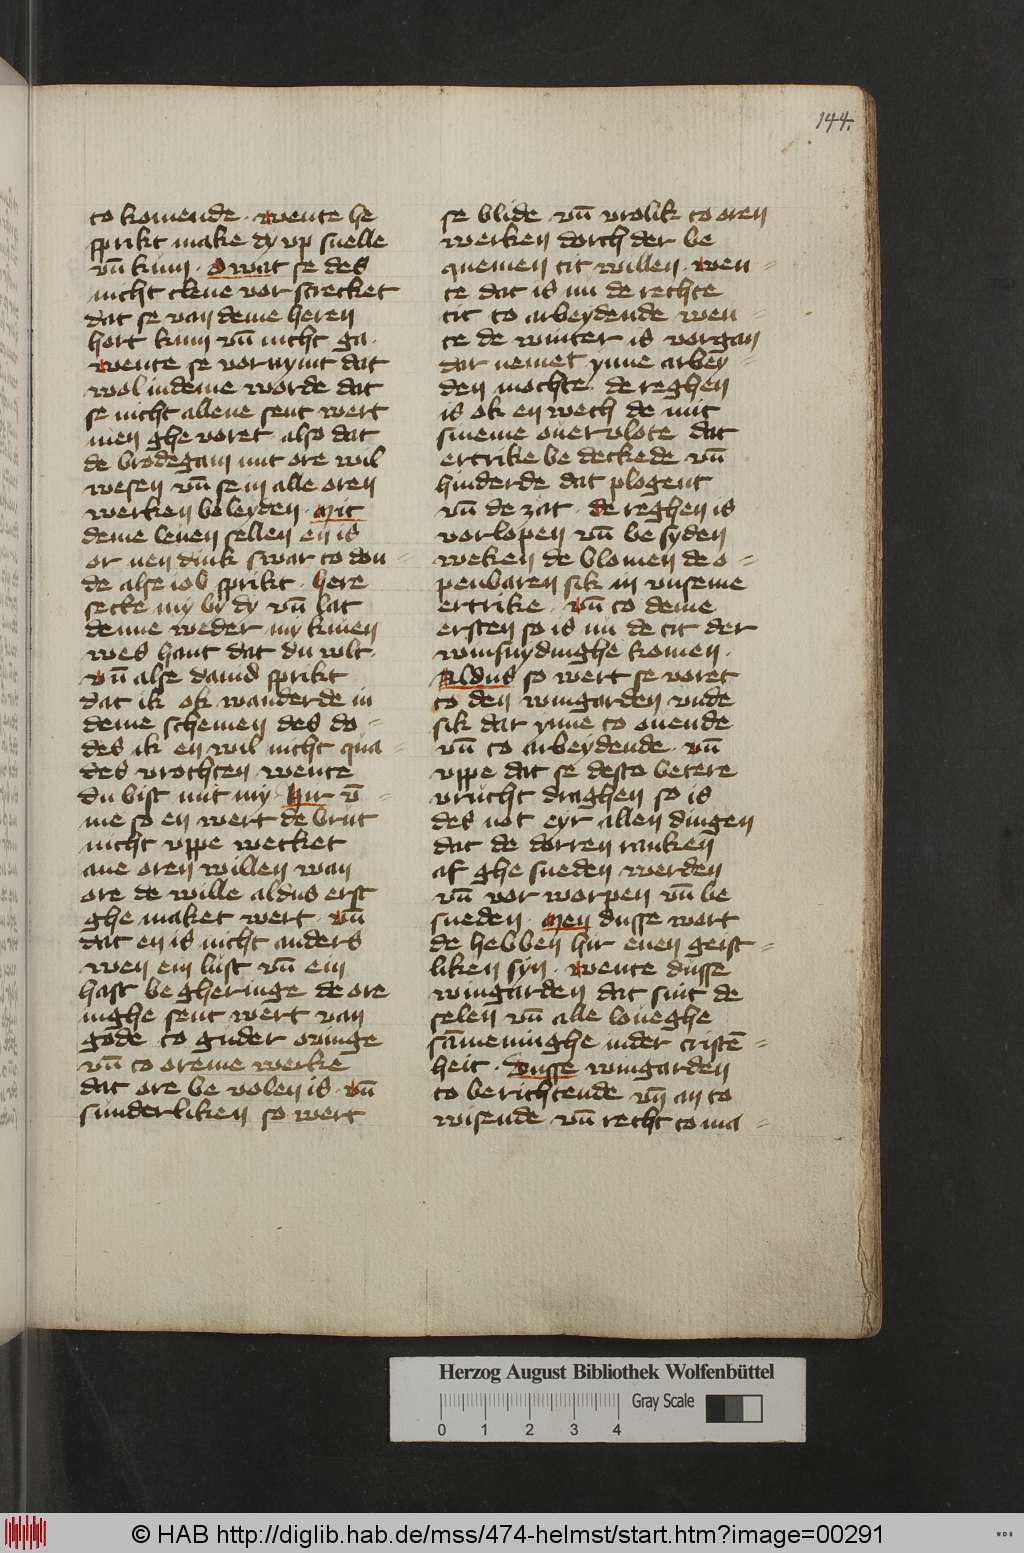 144.
to komende · wente he
sprikt make dy vp snelle
vn̄ kum · O wat se des
nicht cleue vor screcket
dat se van deme heren
hort kum vn̄ nicht ga ·
wente se vornymt dat
wol in deme worde dat
se nicht allene sent wert
men ghe voret also dat
de brodegam mit ore wil
wesen vn̄ se in alle oren
werken beleyden · Mit
deme leuen sellen en is
or nen dink swar to don =
de alse iob sprikt · here
secke my by dy vn̄ lat
denne weder my kmen
wes hant dat du wlt ·
vn̄ alse dauid sprikt
dat ik ok wanderde in
deme schemen des do =
des ik en wil nicht qua =
des vrochten wente
du bist mit my · Hir v̄ =
me so en wert de brut
nicht vppe wecket
ane oren willen wan
ore de wille aldus erst
ghe maket wert · vn̄
dat en is nicht anders
wen ein lust vn̄ ein
hast be gheringe de ore
inghe sent wert van
gode to guder ouinge
vn̄ to oreme werke
dat ore be volen is · vn̄
sunderliken so wert
se blide vn̄ vrolik to oren
werken dorch der be
quemen tit willen · wen =
te dat is nu de rechte
tit to arbeydende wen =
te de winter is vorgan
dar nemet ynne arbey =
den mochte · de reghen
is ok en wech de mit
sineme ouervlote dat
ertrike be deckede vn̄
hinderde dat plogent
vn̄ de zat · de reghen is
vorlopen vn̄ be syden
weken de blomen de o =
penbaren sik in vnseme
ertrike · vn̄ to deme
ersten so is nu de tit der
winsnydinghe komen ·
Aldus so wert se voret
to den wingarden vnde
sik dar ynne to ouende
vn̄ to arbeydende · vn̄
vppe dat se desto betere
vrucht draghen so is
des not eyr allen dingen
dat de dorren ranken
af ghe sneden werden
vn̄ vor worpen vn̄ be
sneden · Men dusse wort
de hebben hir enen geist =
liken syn · wente dusse
wingarden dat sint de
selen vn̄ alle loueghe
sāmeninghe in der cristē =
heit · Dusse wingarden
to berichtende vn̄ an to
wisende vn̄ recht to ma =
Herzog August Bibliothek Wolfenbüttel
Gray Scale
0 1 2 3 4
© HAB http://diglib.hab.de/mss/474-helmst/start.htm?image=00291
WDB